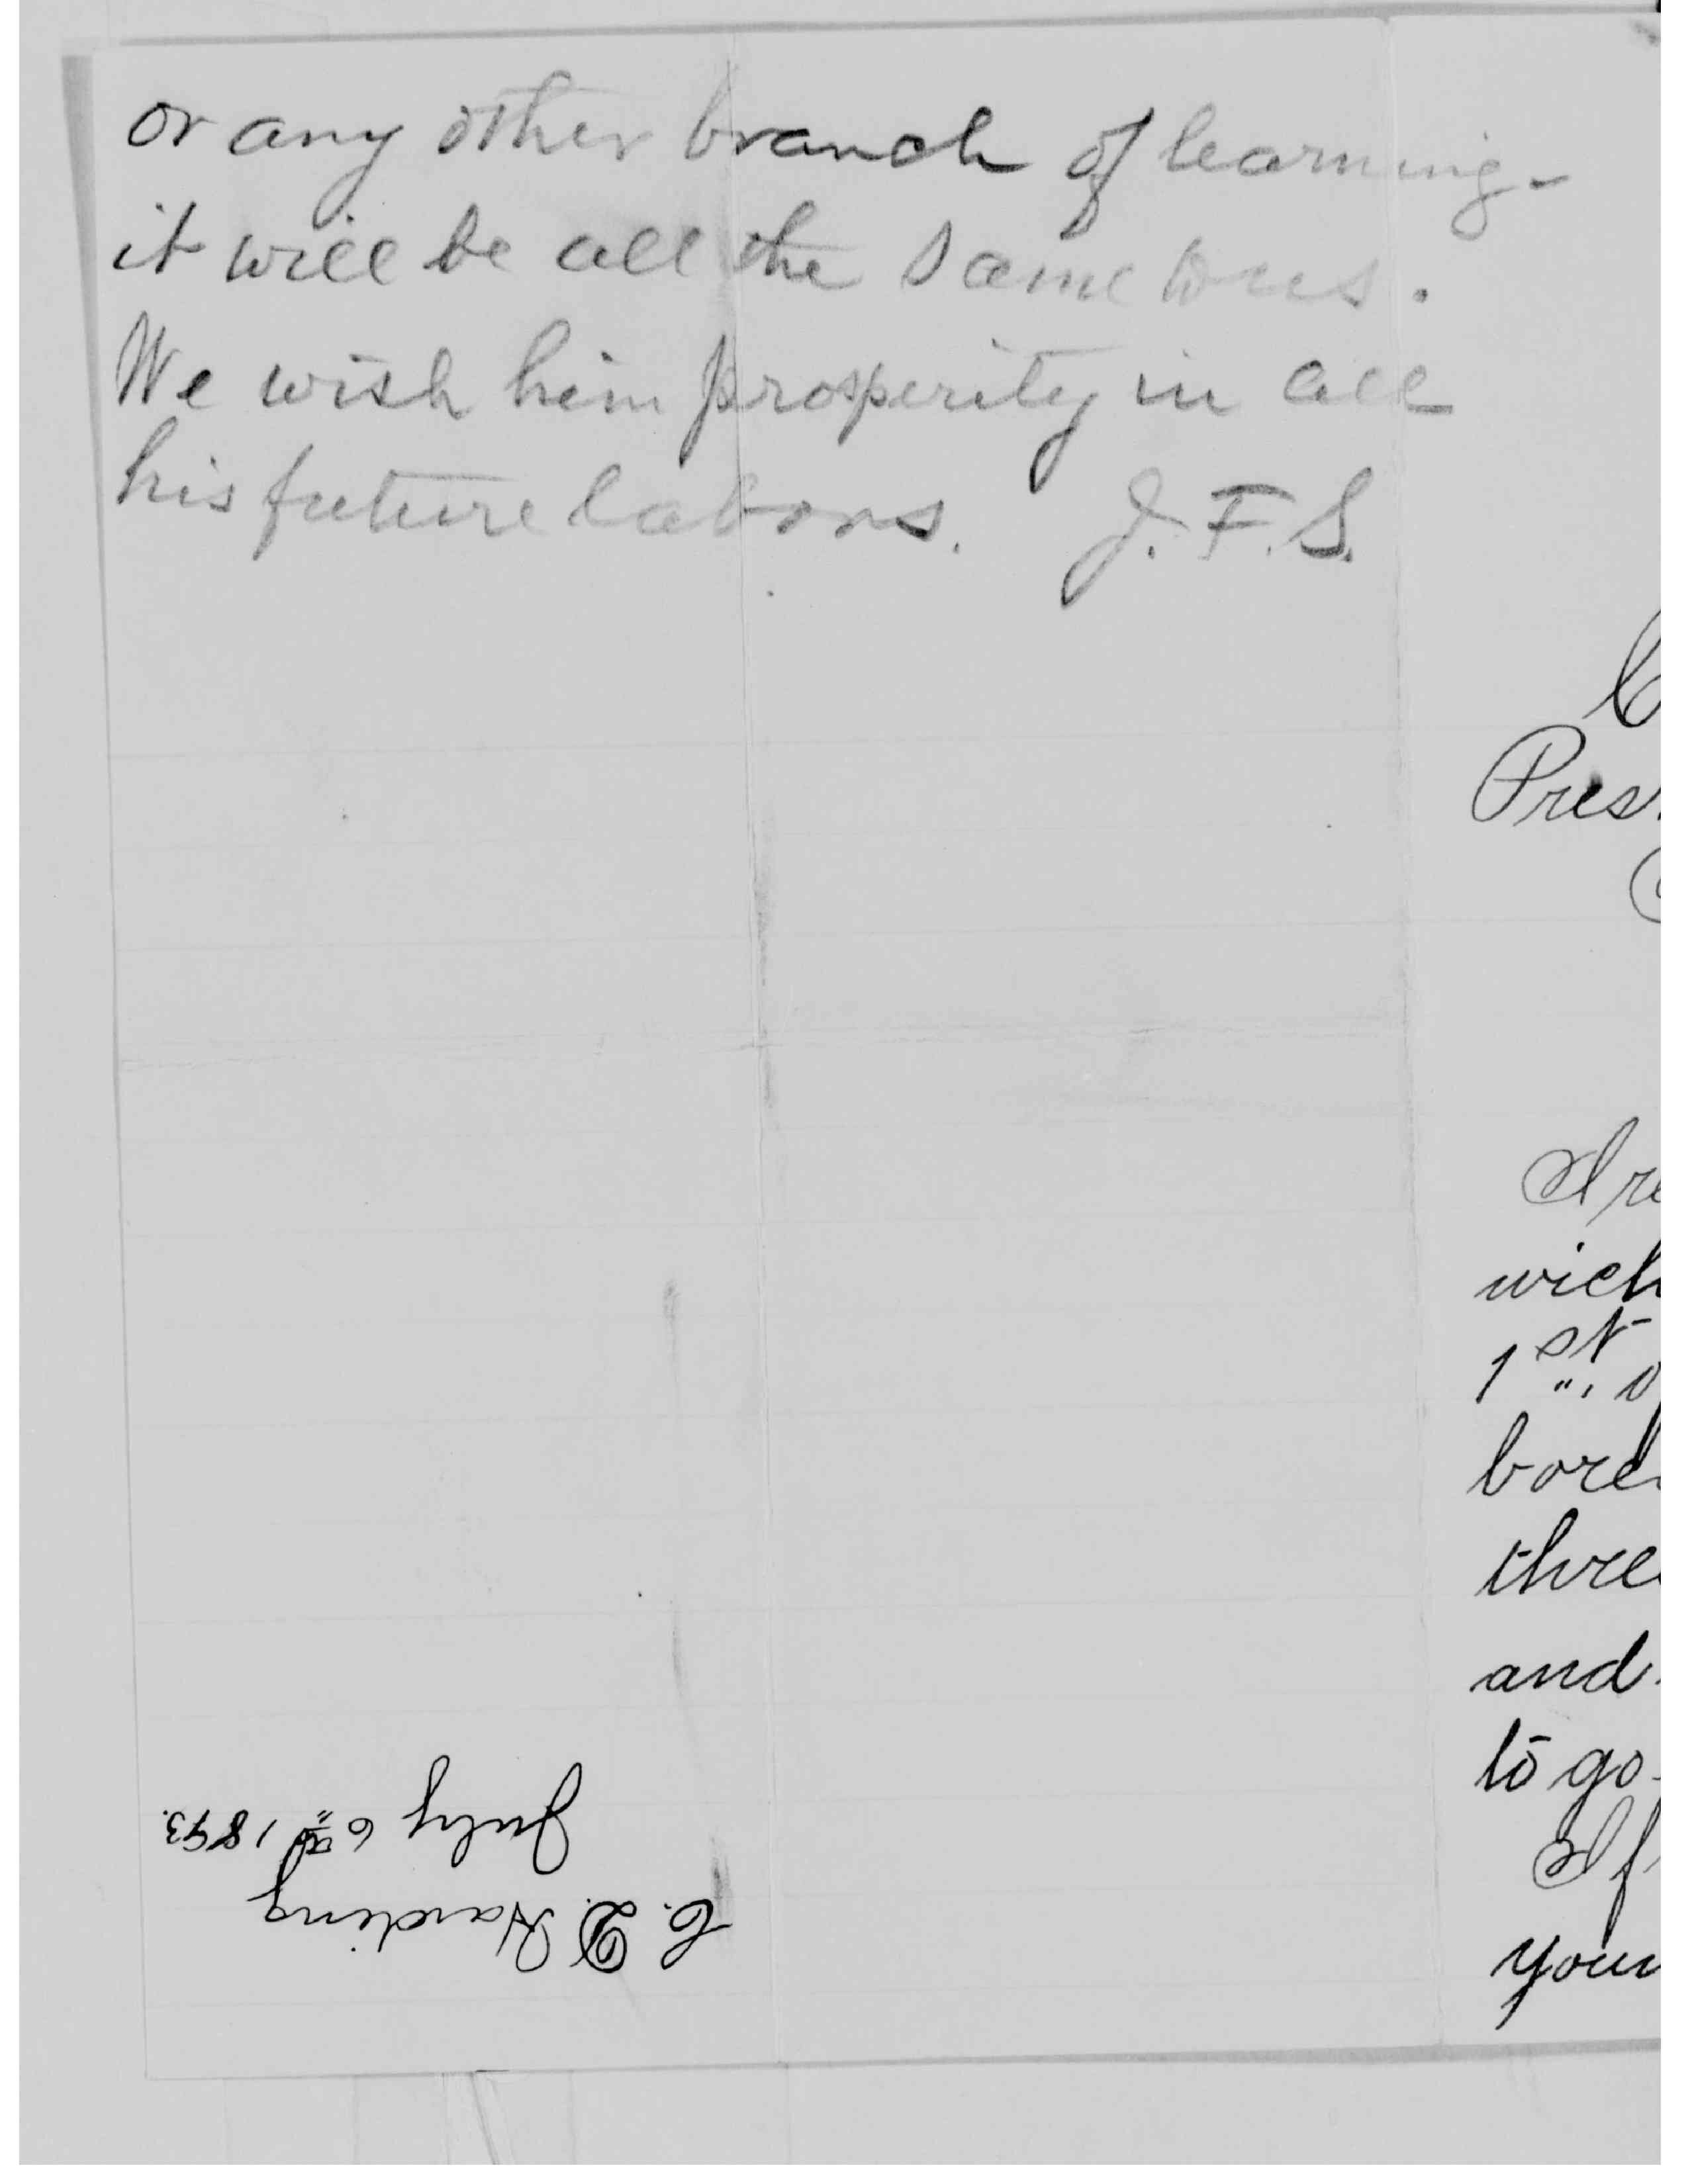 or any other branch of learning-
it will be all the same to us.
We wish him prosperity in all
his future labors. J. F. S.
C. D. Harding
July 6th 1893.
Pres
I re
wich
1st o
bore
thre
and
to go
If
your